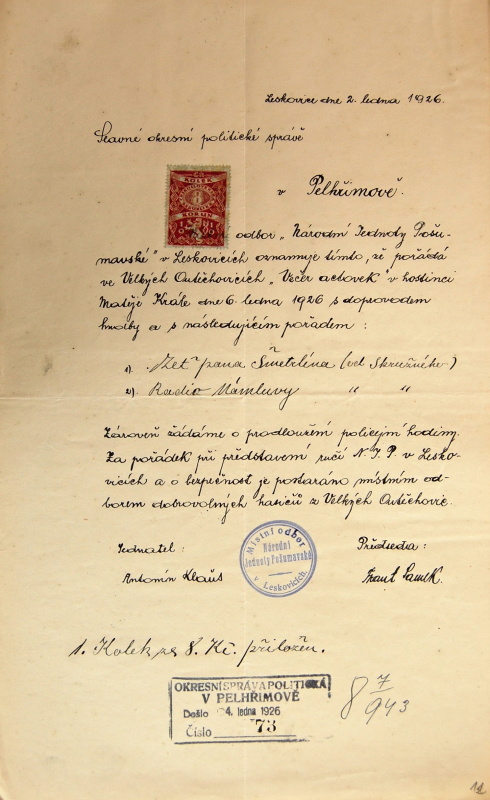 Leskovice dne 2. ledna 1926.
Slavné okresní politické správě
v Pelhřimově.
KOLEK
KORUN
odbor „Národní Jednoty Pošu-
mavské" v Leskovicích oznamuje tímto, že pořádá
ve Velkých Outěchovicích „Večer aktovek" v hostinci
Matěje Krále dne 6. ledna 1926 s doprovodem
hudby a s následujícím pořadem :
1) Zeť pana Šmetrlína (od Skružného)
2) Radio Námluvy " "
Zároveň žádáme o prodloužení policejní hodiny.
Za pořádek při představení ručí N.J.P. v Lesko-
vicích a o bezpečnost je postaráno místním od-
borem dobrovolných hasičů z Velkých Outěchovic.
Jednatel :
Předseda :
Místní odbor
Národní
Jednoty Pošumavské
v Leskovicích
Antonín
Frant
1. Kolek za 8. Kč. přiložen.
OKRESNÍ SPRÁVA POLITICKÁ
V PELHŘIMOVĚ
Došlo 4. ledna 1926
Číslo 73
8 7/943